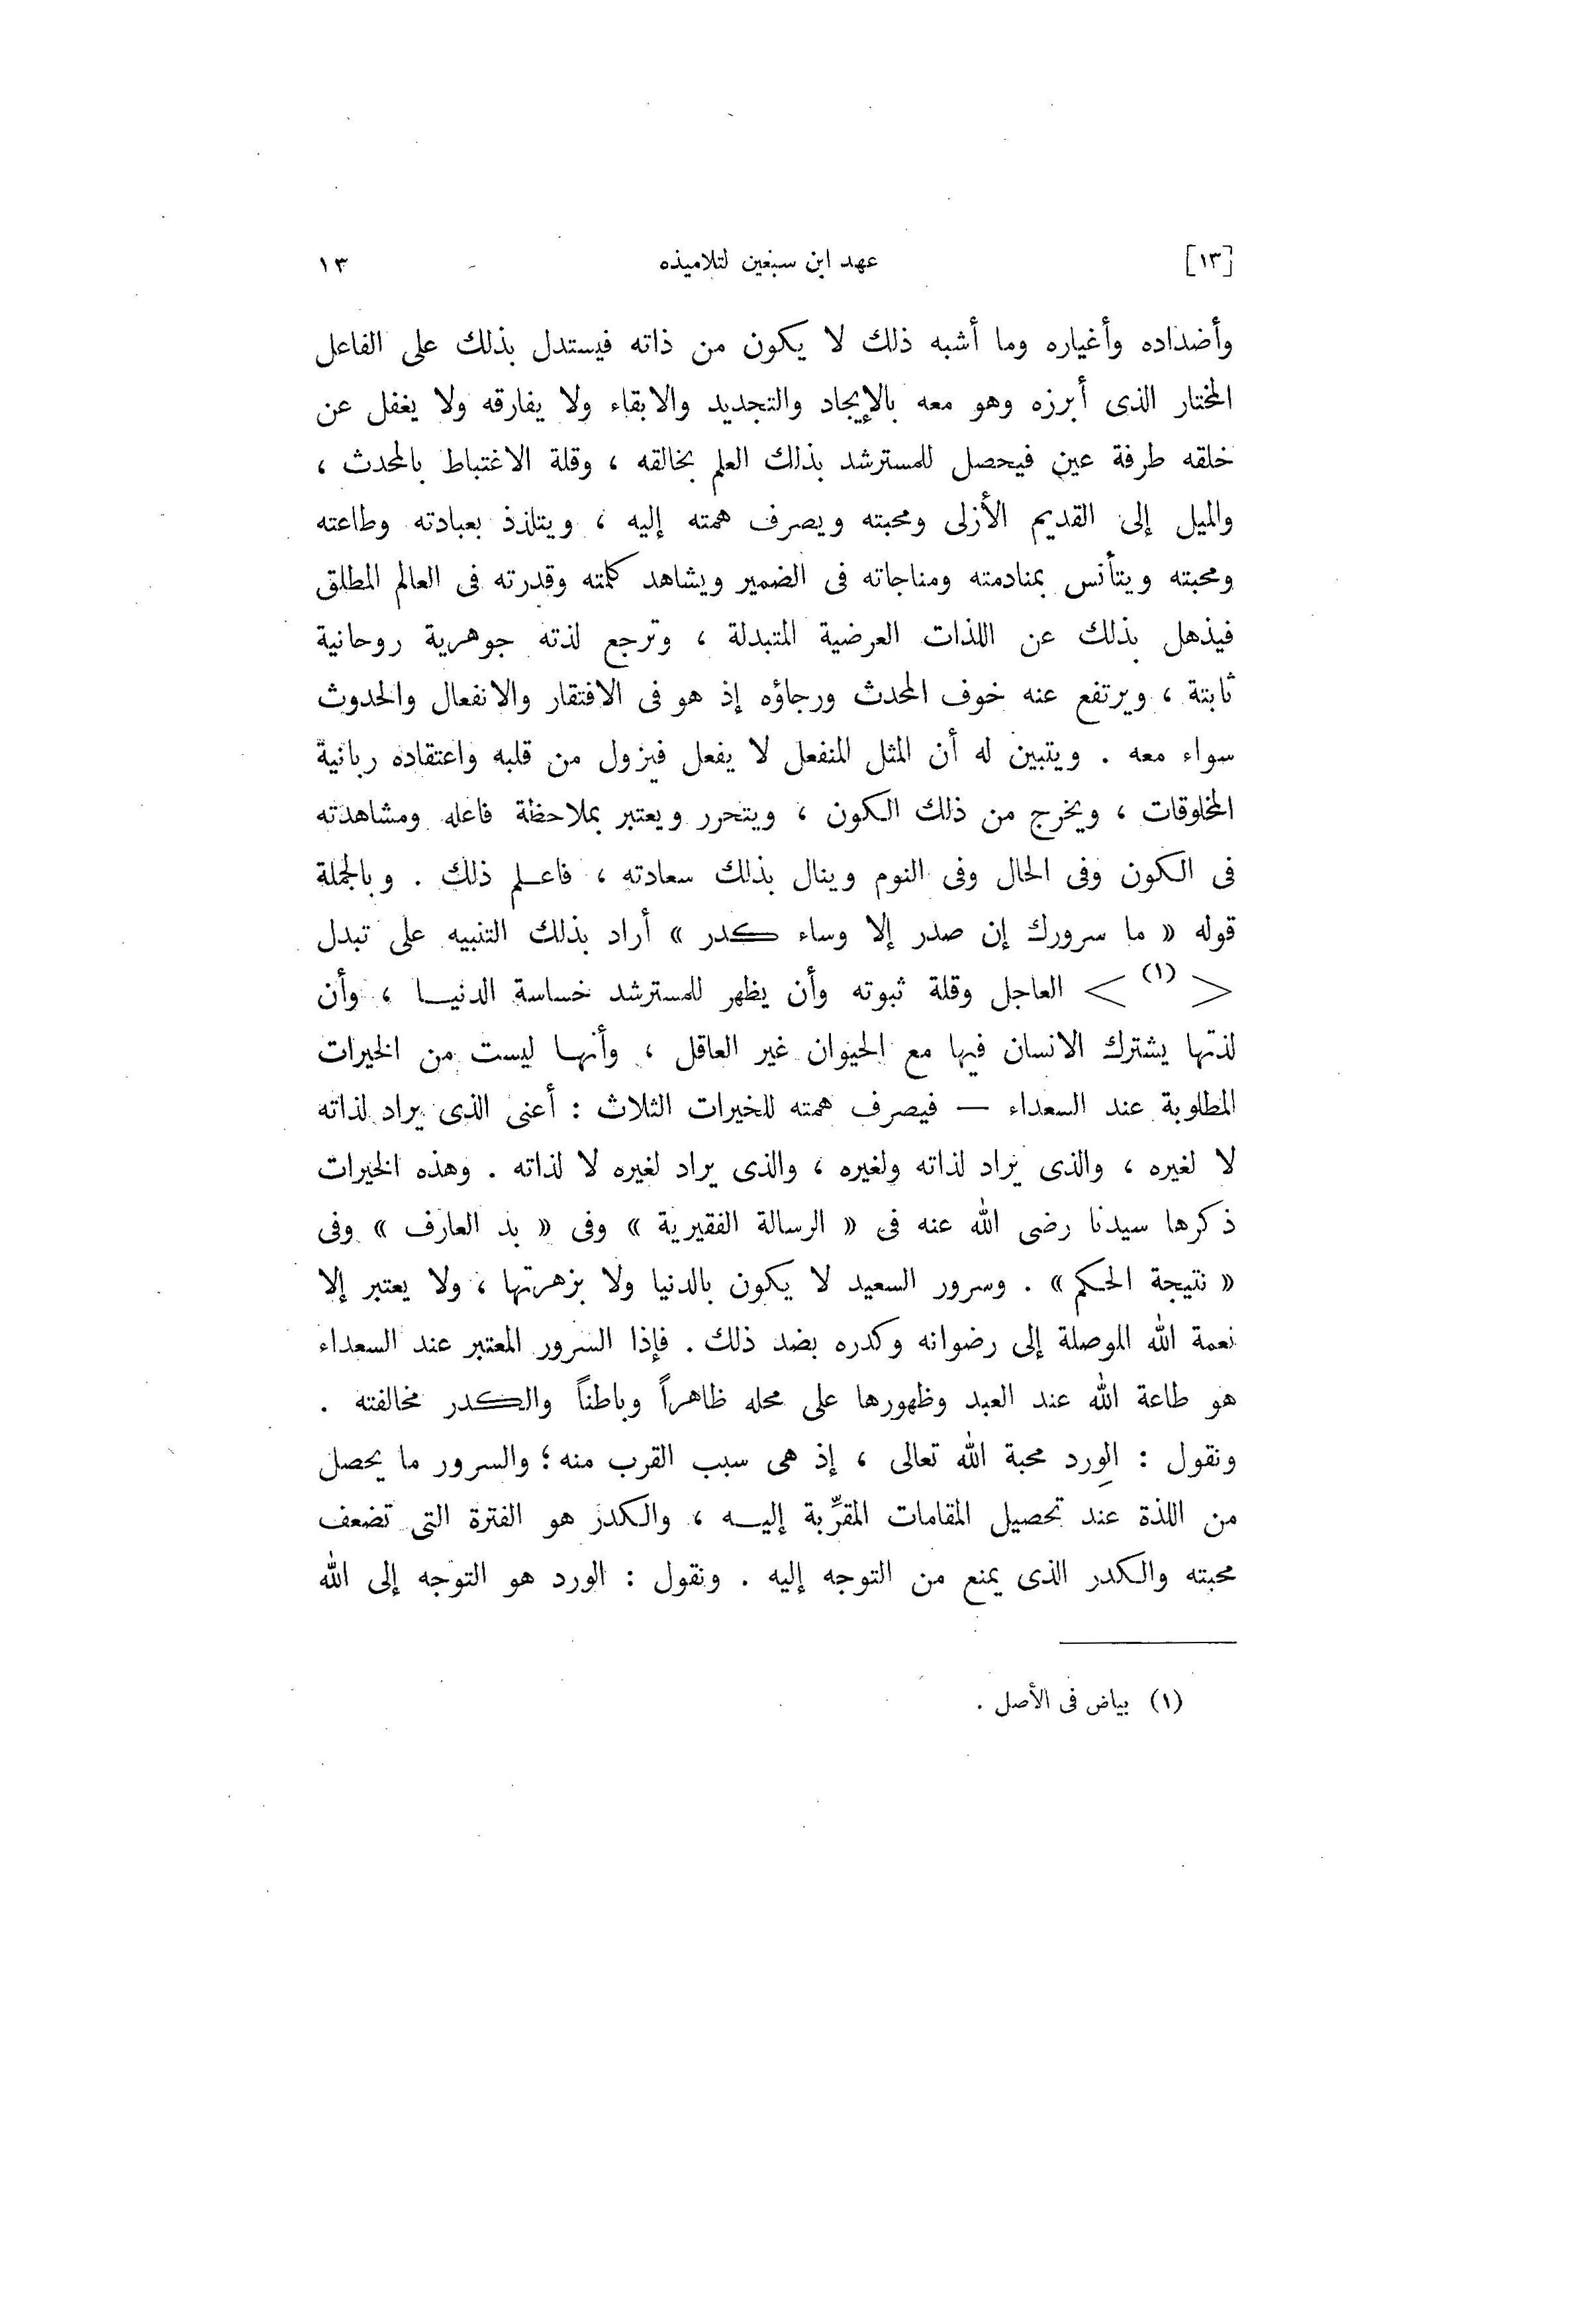 [١٣] عهد ابن سبعين لتلاميذه ١٣
وأضداده وأغياره وما أشبه ذلك لا يكون من ذاته فيستدل بذلك على الفاعل
المختار الذى أبرزه وهو معه بالإيجاد والتجديد والابقاء ولا يفارقه ولا يغفل عن
خلقه طرفة عين فيحصل للمسترشد بذلك العلم بخالقه ، وقلة الاغتباط بالمحدث ،
والميل إلى القديم الأزلى ومحبته ويصرف همته إليه ، ويتلذذ بعبادته وطاعته
ومحبته ويتأنس بمنادمته ومناجاته فى الضمير ويشاهد كلمته وقدرته فى العالم المطلق
فيذهل بذلك عن اللذات العرضية المتبدلة ، وترجع لذته جوهرية روحانية
ثابتة ، ويرتفع عنه خوف المحدث ورجاؤه إذ هو فى الافتقار والانفعال والحدوث
سواء معه . ويتبين له أن المثل المنفعل لا يفعل فيزول من قلبه واعتقاده ربانية
المخلوقات ، ويخرج من ذلك الكون ، ويتحرر ويعتبر بملاحظة فاعله ومشاهدته
فى الكون وفى الحال وفى النوم وينال بذلك سعادته ، فاعلم ذلك . وبالجملة
قوله « ما سرورك إن صدر إلا وساء كدر » أراد بذلك التنبيه على تبدل
< (١) > العاجل وقلة ثبوته وأن يظهر للمسترشد خساسة الدنيا ، وأن
لذتها يشترك الانسان فيها مع الحيوان غير العاقل ، وأنها ليست من الخيرات
المطلوبة عند السعداء — فيصرف همته للخيرات الثلاث : أعنى الذى يراد لذاته
لا لغيره ، والذى يراد لذاته ولغيره ، والذى يراد لغيره لا لذاته . وهذه الخيرات
ذكرها سيدنا رضى الله عنه فى « الرسالة الفقيرية » وفى « بد العارف » وفى
« نتيجة الحكم » . وسرور السعيد لا يكون بالدنيا ولا بزهرتها ، ولا يعتبر إلا
نعمة الله الموصلة إلى رضوانه وكدره بضد ذلك . فإذا السرور المعتبر عند السعداء
هو طاعة الله عند العبد وظهورها على محله ظاهراً وباطناً والكدر مخالفته .
ونقول : الوِرد محبة الله تعالى ، إذ هى سبب القرب منه ؛ والسرور ما يحصل
من اللذة عند تحصيل المقامات المقرِّبة إليه ، والكدر هو الفترة التى تضعف
محبته والكدر الذى يمنع من التوجه إليه . ونقول : الورد هو التوجه إلى الله
(١) بياض فى الأصل .